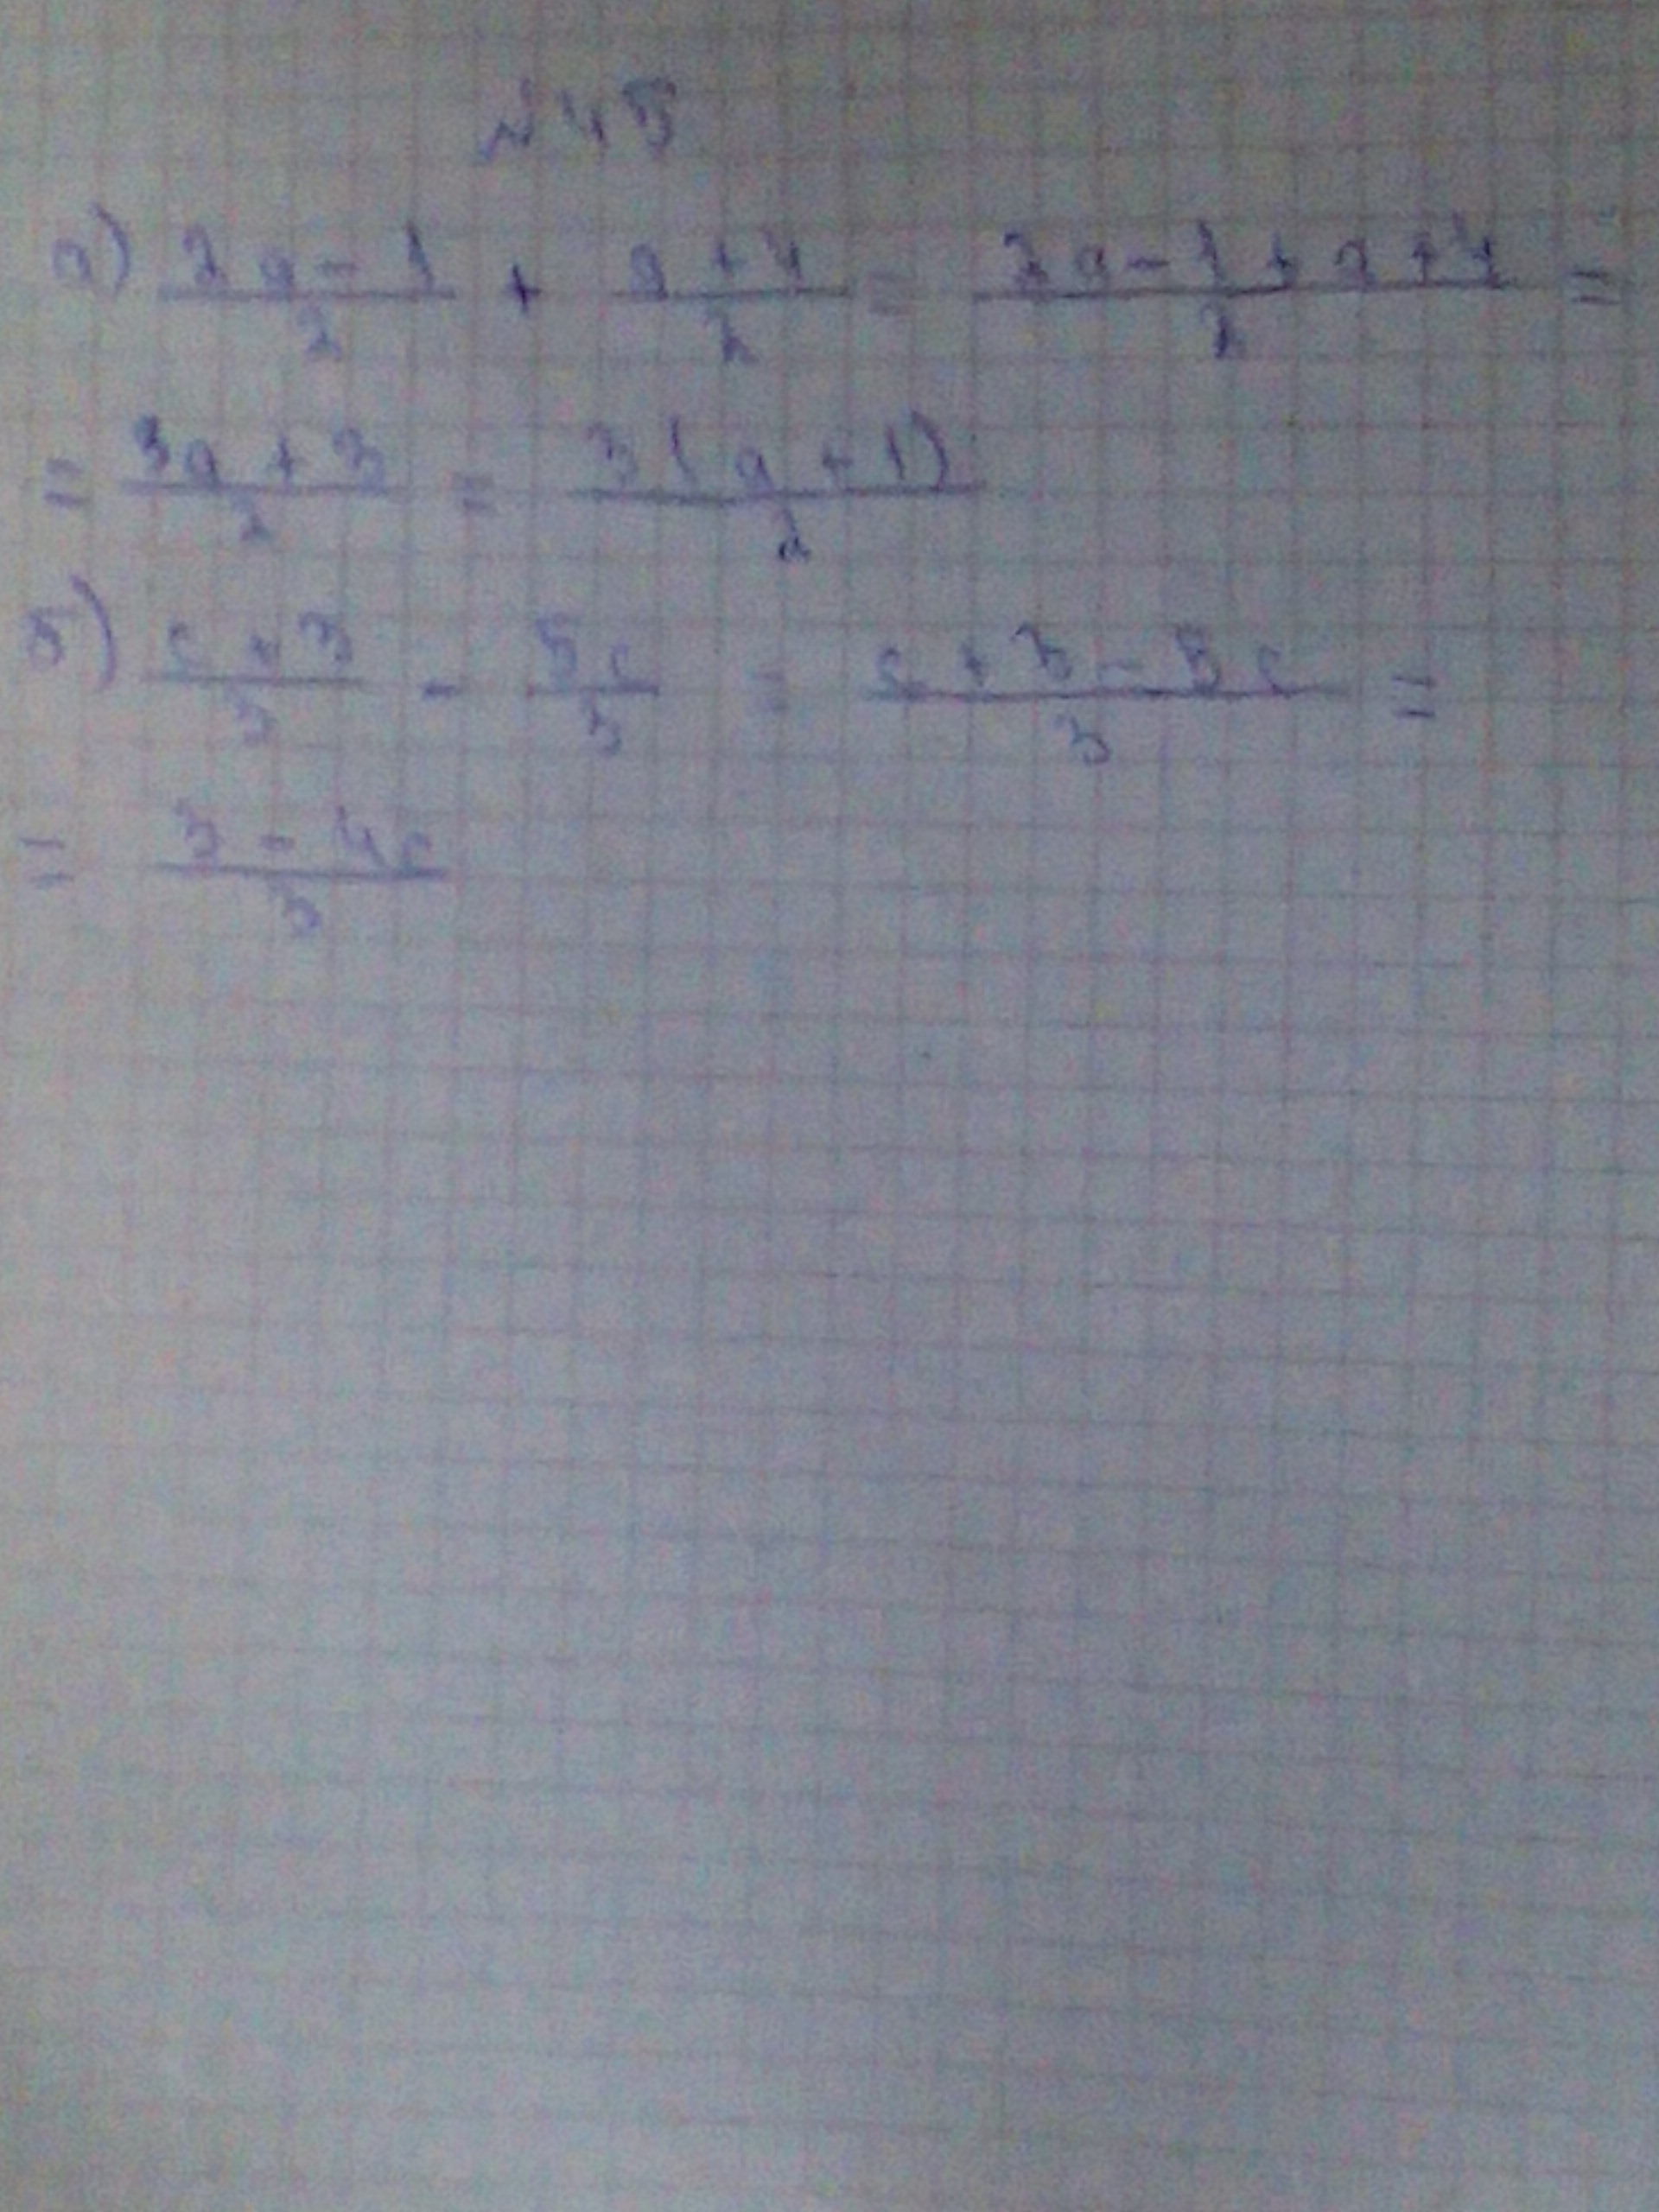 № 45
а) (2a - 1)/2 + (a + 4)/2 = (2a - 1 + a + 4)/2 =
= (3a + 3)/2 = 3(a + 1)/2
б) (c + 3)/3 - 5c/3 = (c + 3 - 5c)/3 =
= (3 - 4c)/3